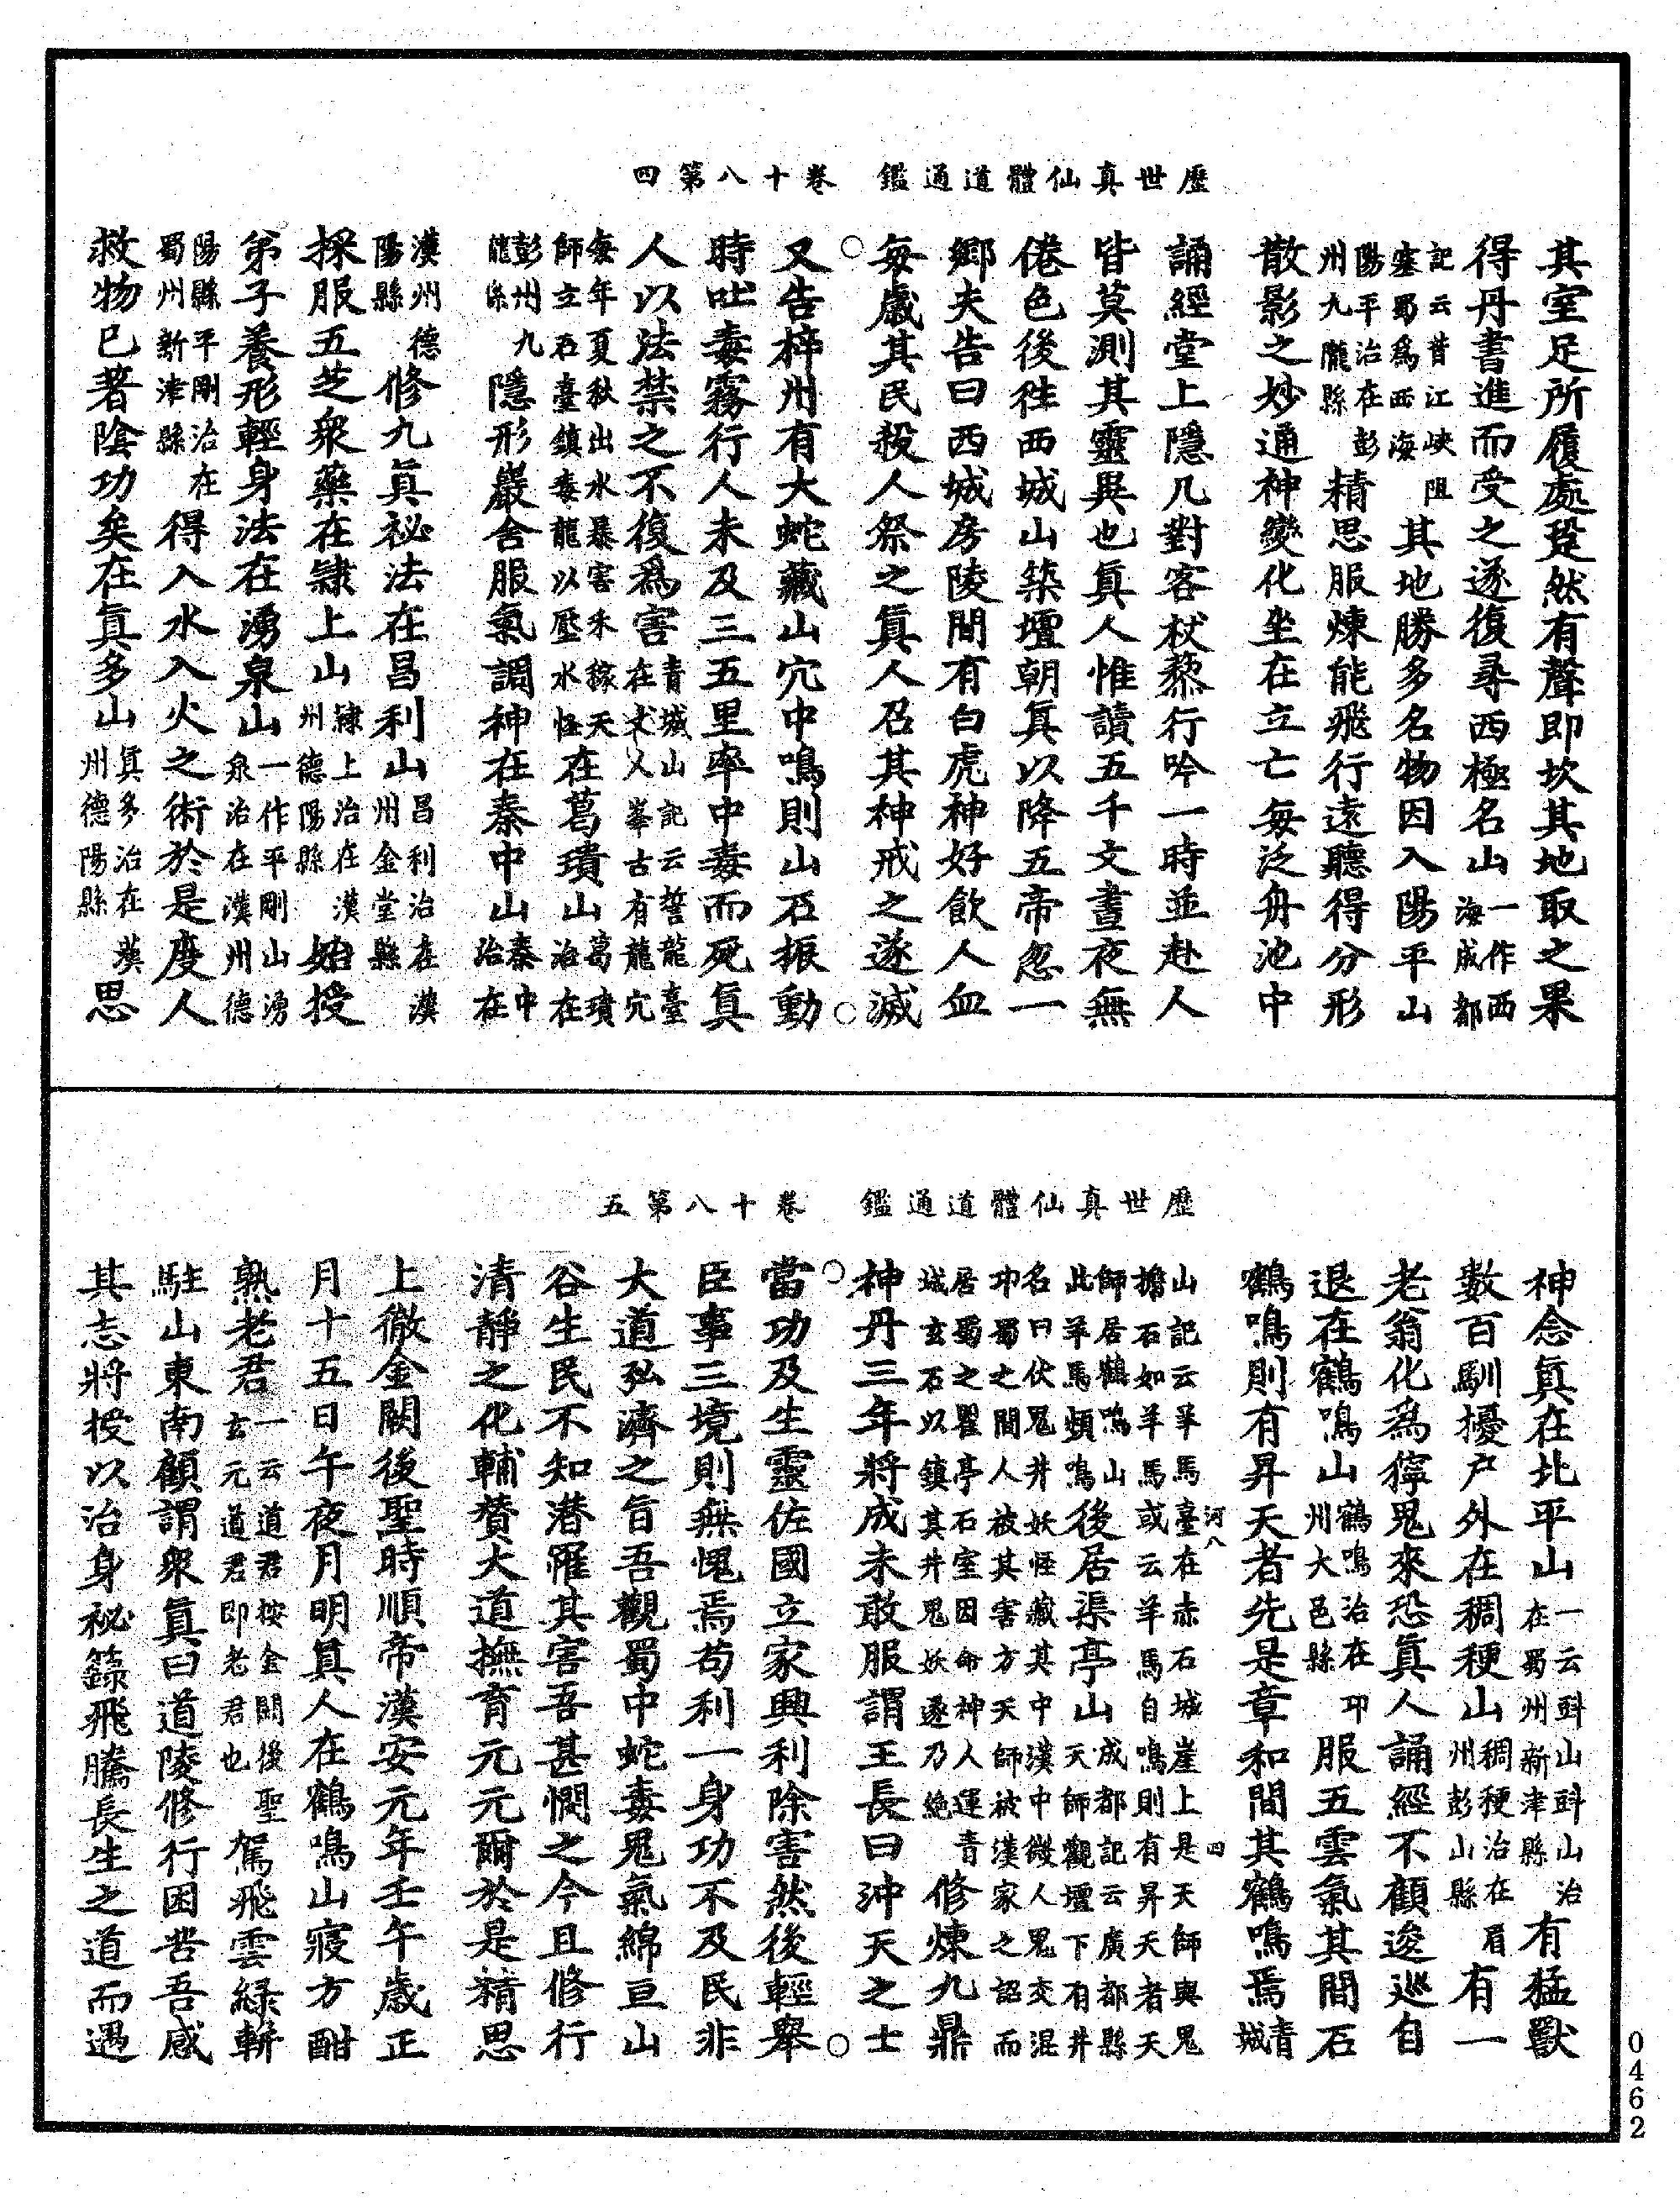 歷世真仙體道通鑑　卷十八第四
其室足所履處跫然有聲即坎其地取之果
得丹書進而受之遂復尋西極名山一作西海成都
記云昔江峽阻塞蜀爲西海其地勝多名物因入陽平山
陽平治在彭州九隴縣精思服煉能飛行遠聽得分形
散影之妙通神變化坐在立亡每泛舟池中
誦經堂上隱几對客杖藜行吟一時並赴人
皆莫測其靈異也真人惟讀五千文晝夜無
倦色後往西城山築壇朝真以降五帝忽一
鄉夫告曰西城房陵間有白虎神好飲人血
每歲其民殺人祭之真人召其神戒之遂滅
又告梓州有大蛇藏山穴中鳴則山石振動
時吐毒霧行人未及三五里率中毒而死真
人以法禁之不復爲害青城山記云誓龍臺在丈人峯古有龍穴
每年夏秋出水暴害禾稼天師立石臺鎮毒龍以壓水怪在葛璝山葛璝治在
彭州九隴縣隱形巖舍服氣調神在秦中山秦中治在
漢州德陽縣修九真祕法在昌利山昌利治在漢州金堂縣
採服五芝衆藥在隸上山隸上治在漢州德陽縣始授
弟子養形輕身法在湧泉山一作平剛山湧泉治在漢州德
陽縣平剛治在蜀州新津縣得入水入火之術於是度人
救物已著陰功矣在真多山真多治在漢州德陽縣思
歷世真仙體道通鑑　卷十八第五
神念真在北平山一云㪷山㪷山治在蜀州新津縣有猛獸
數百馴擾户外在稠稉山稠稉治在眉州彭山縣有一
老翁化爲獰鬼來恐真人誦經不顧逡巡自
退在鶴鳴山鶴鳴治在邛州大邑縣服五雲氣其間石
鶴鳴則有昇天者先是章和間其鶴鳴焉青城
山記云羊馬臺在赤石城崖上是天師與鬼擔石如羊馬或云羊馬自鳴則有昇天者天
師居鶴鳴山此羊馬頻鳴後居渠亭山成都記云廣都縣天師觀壇下有井
名曰伏鬼井妖怪藏其中漢中微人鬼交混邛蜀之間人被其害方天師被漢家之詔而
居蜀之瞿亭石室因命神人運青城玄石以鎮其井鬼妖遂乃絶修煉九鼎
神丹三年將成未敢服謂王長曰沖天之士
當功及生靈佐國立家興利除害然後輕舉
臣事三境則無愧焉苟利一身功不及民非
大道弘濟之旨吾觀蜀中蛇毒鬼氣綿亘山
谷生民不知潛罹其害吾甚憫之今且修行
清靜之化輔贊大道撫育元元爾於是精思
上徹金闕後聖時順帝漢安元年壬午歲正
月十五日午夜月明真人在鶴鳴山寢方酣
熟老君一云道君按金闕後聖玄元道君即老君也駕飛雲緑軿
駐山東南顧謂衆真曰道陵修行困苦吾感
其志將授以治身秘籙飛騰長生之道而遇
河八　四
0462